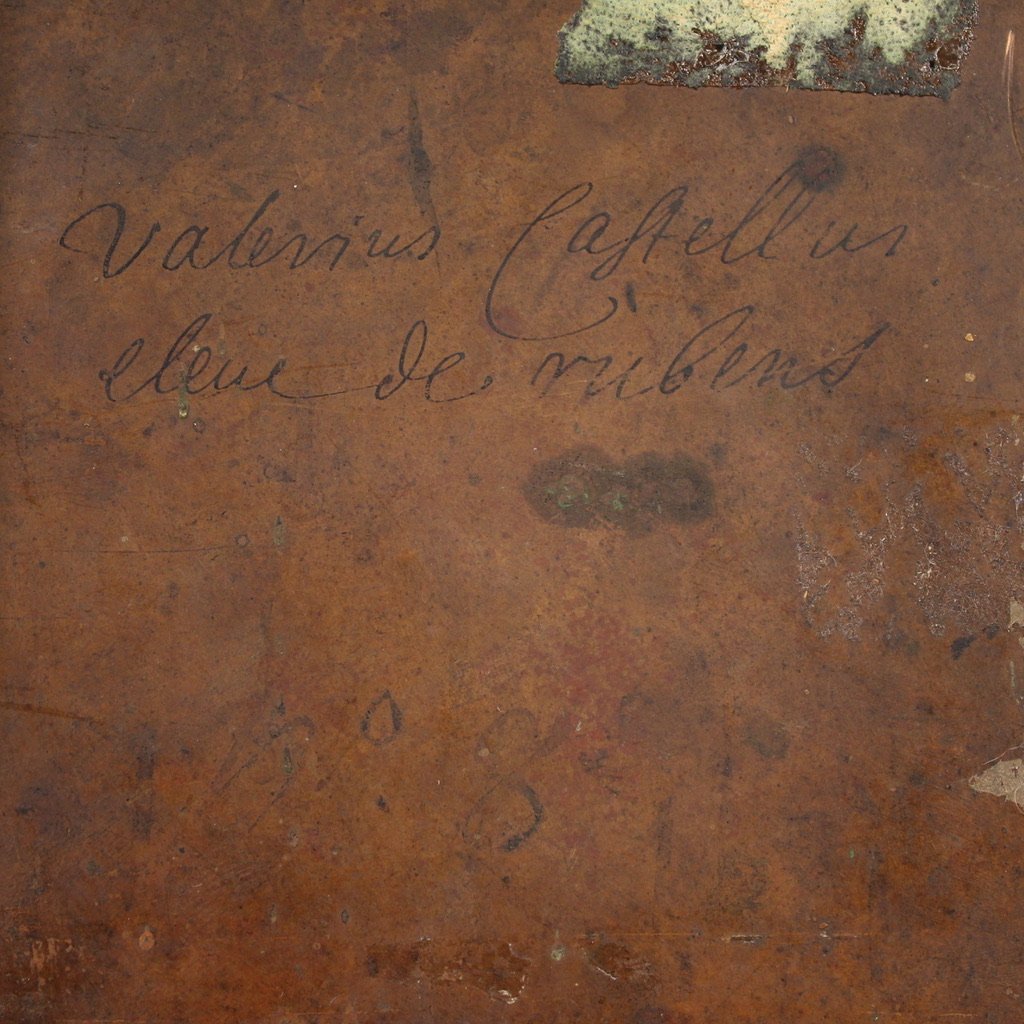 Valerius Castellus
eleue de rubens
N° 8